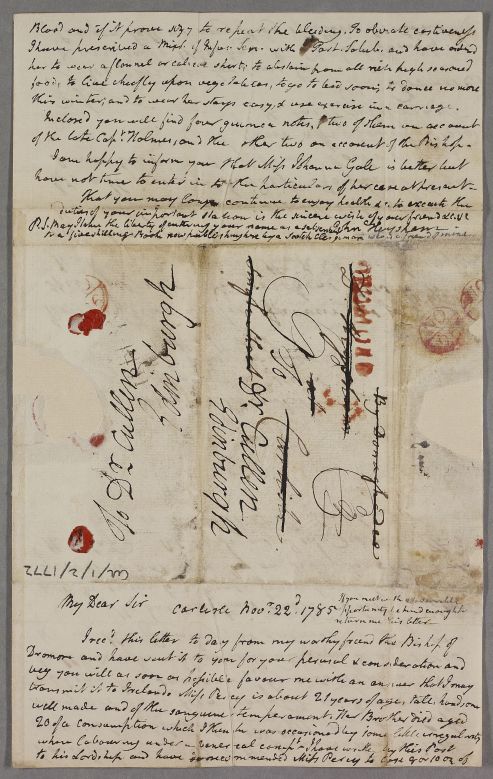 Blood and if it prove sizy to repeat the bleeding. To obviate costiveness
I have prescribed a Mixt. of Infus. Sen. with Tart. Solub. and have ordered
her to wear a flannel or calicoe shirt; to abstain from all rich high seasoned
food, to live chiefly upon vegetables, to go to bed soon, to dance no more
this winter, and to wear her stays easy, & use exercise in a carriage.
Inclosed you will find four guinea notes, two of them on account
of the late Capt. Holmes, and the other two on account of the Bishop.
I am happy to inform you that Miss Gale is better but
have not time to enter in to the particulars of her case at present.
That you may long continue to enjoy health &c. to execute the
duties of your important station is the sincere wish of your friend &c. &c
P.S. May I take the liberty of entering your name as a subscriber John Heysham
to a five shilling Book now publishing here by a Scotch Clergyman who is a friend of mine
To Dr Cullen
Edinburgh
To
Dr Cullen
Edinburgh
By Donaghadee
CUL/1/2/1772
My Dear Sir Carlisle Novr. 22d. 1785
If you meet with a favourable
opportunity be kind enough to
return me this letter
I recd. this letter to day from my worthy friend the Bishop of
Dromore and have sent it to you for your perusal & consideration and
beg you will as soon as possible favour me with an answer that I may
transmit it to Ireland. Miss Percy is about 21 years of age, tall, handsome
well made and of the sanguine temperament. Her Brother died aged
20 of a consumption which I think he was occasioned by some little irregularity
when labouring under a venereal compt. I have wrote by this Post
to his Lordship and have recommended Miss Percy to lose 9 or 10 oz of